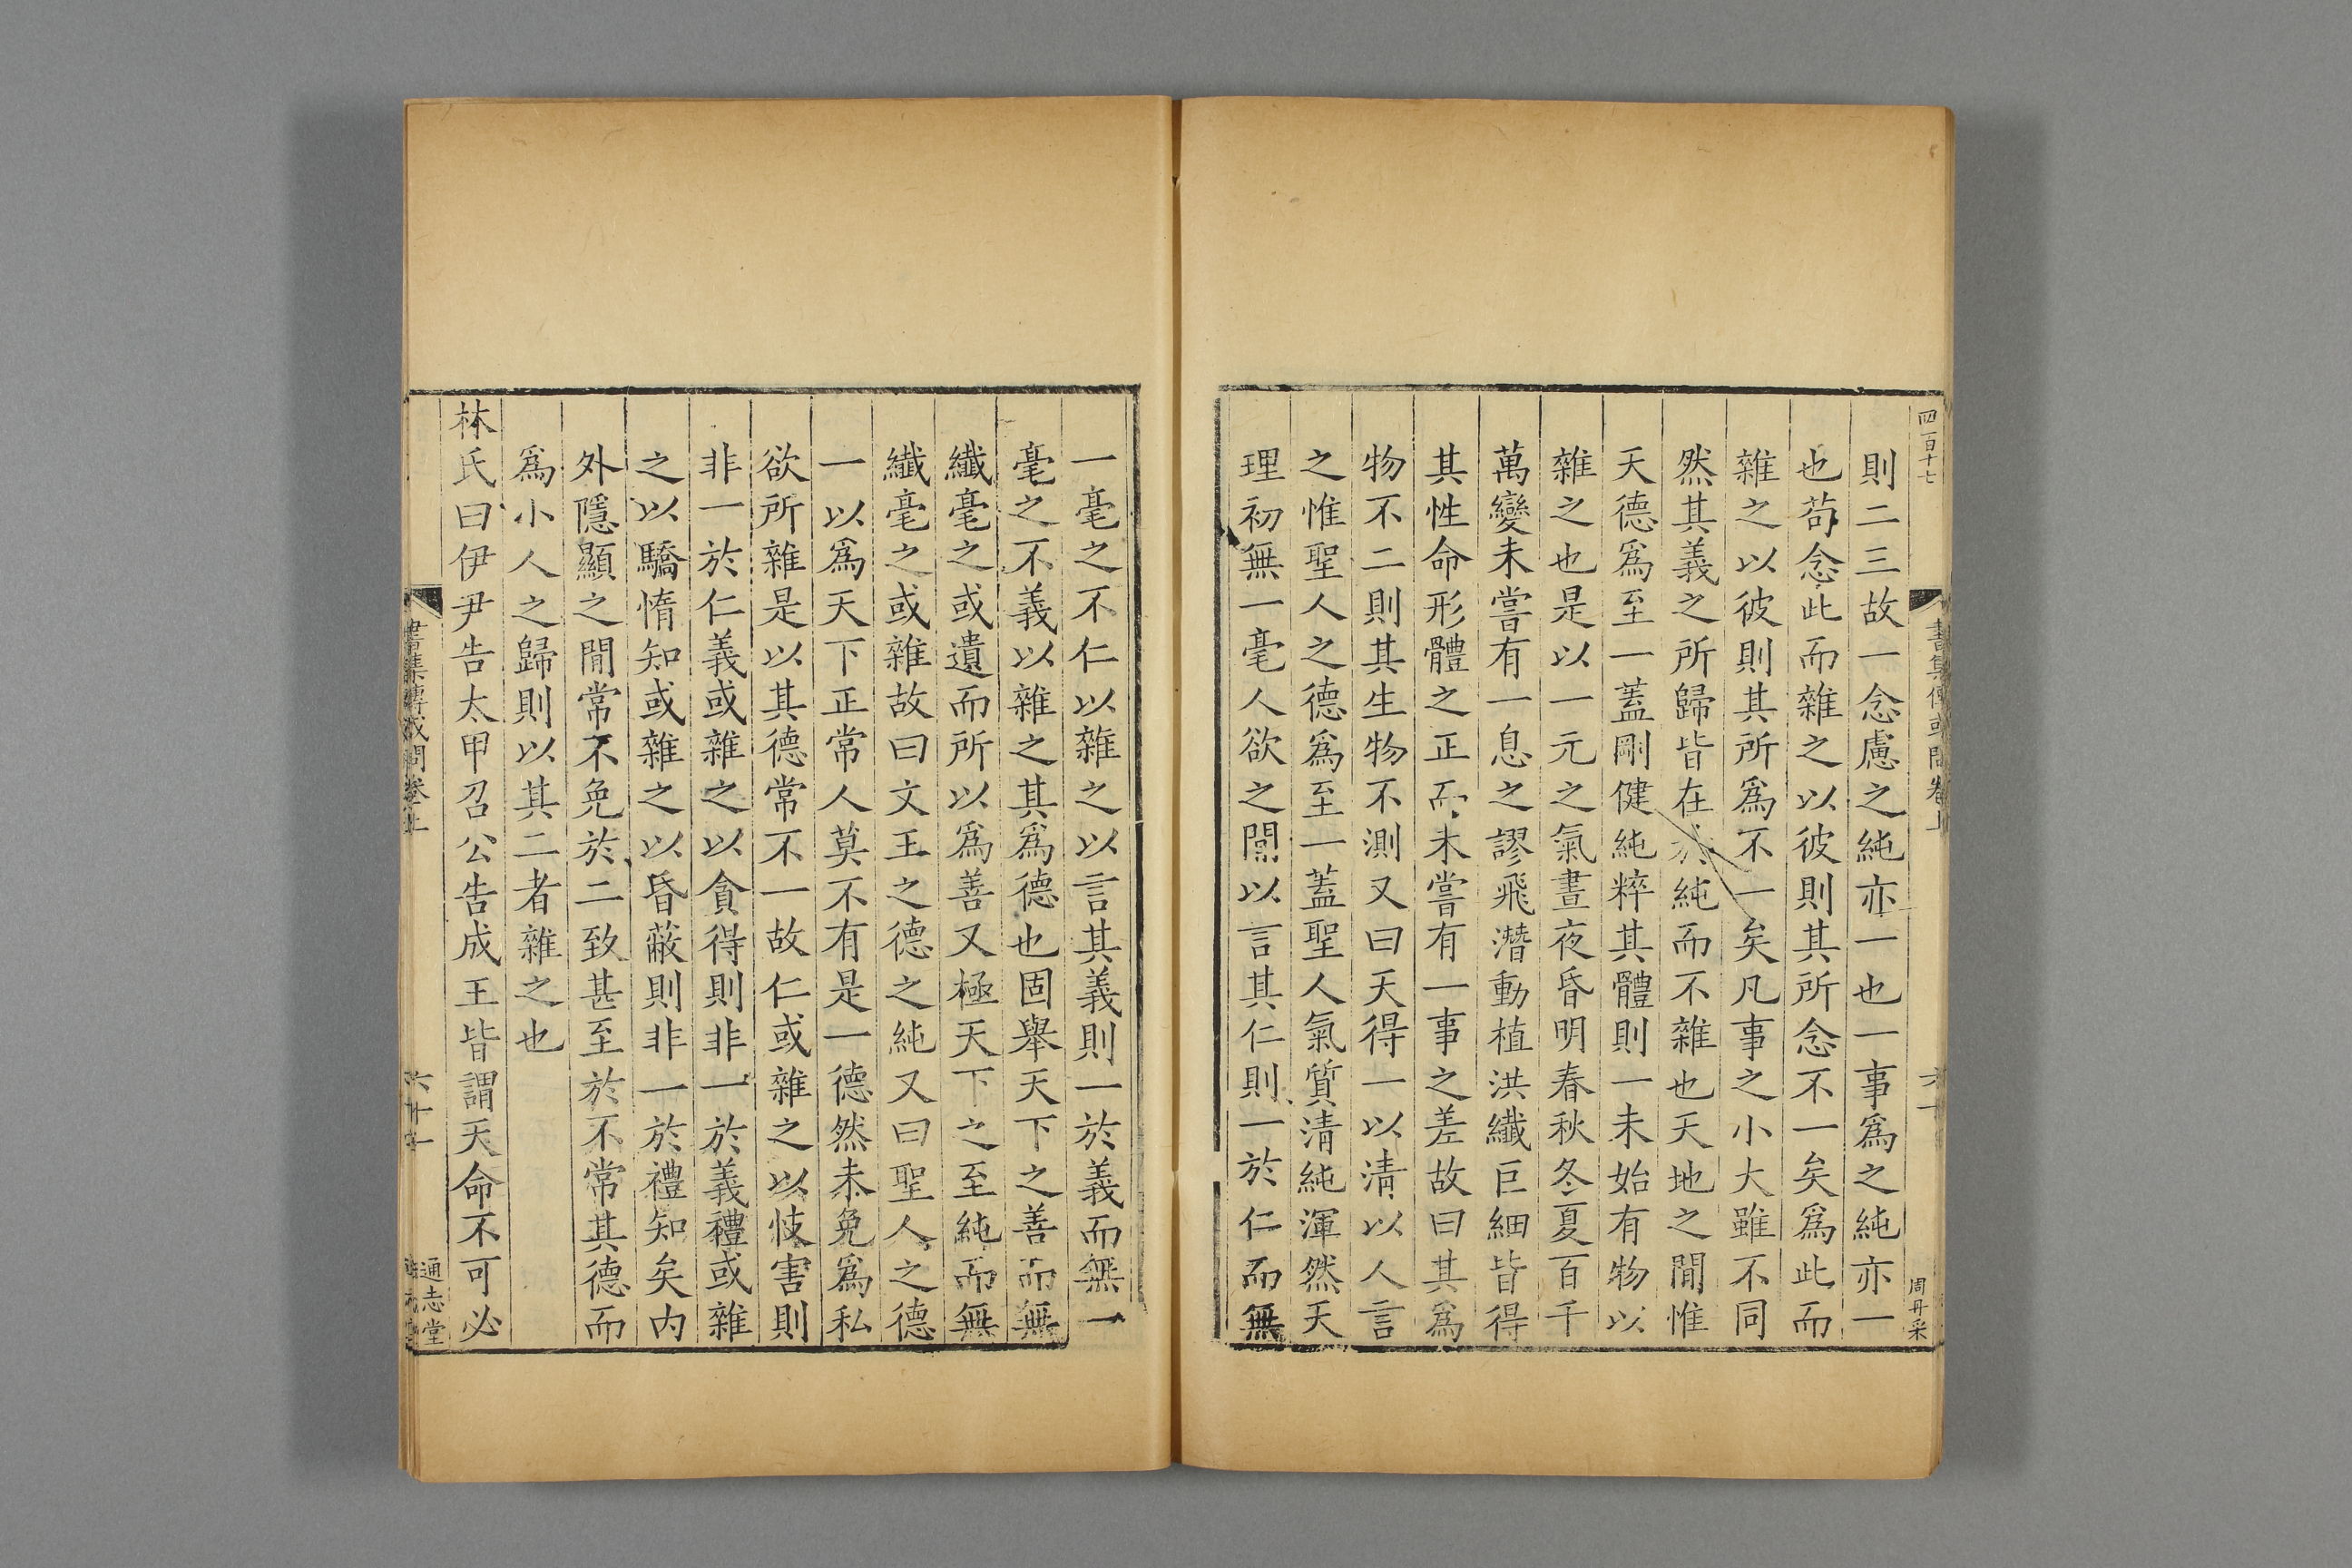 四百十七
書集傳或問卷上
周丹采
則二三故一念慮之純亦一也一事爲之純亦一
也苟念此而雜之以彼則其所念不一矣爲此而
雜之以彼則其所爲不一矣凡事之小大雖不同
然其義之所歸皆在於純而不雜也天地之閒惟
天德爲至一蓋剛健純粹其體則一未始有物以
雜之也是以一元之氣晝夜昏明春秋冬夏百千
萬變未嘗有一息之謬飛潛動植洪纖巨細皆得
其性命形體之正而未嘗有一事之差故曰其爲
物不二則其生物不測又曰天得一以淸以人言
之惟聖人之德爲至一蓋聖人氣質淸純渾然天
理初無一毫人欲之閒以言其仁則一於仁而無
一毫之不仁以雜之以言其義則一於義而無一
毫之不義以雜之其爲德也固舉天下之善而無
纖毫之或遺而所以爲善又極天下之至純而無
纖毫之或雜故曰文王之德之純又曰聖人之德
一以爲天下正常人莫不有是一德然未免爲私
欲所雜是以其德常不一故仁或雜之以忮害則
非一於仁義或雜之以貪得則非一於義禮或雜
之以驕惰知或雜之以昏蔽則非一於禮知矣内
外隱顯之閒常不免於二致甚至於不常其德而
爲小人之歸則以其二者雜之也
林氏曰伊尹告太甲召公告成王皆謂天命不可必
書集傳或問卷上
六十一
通志堂